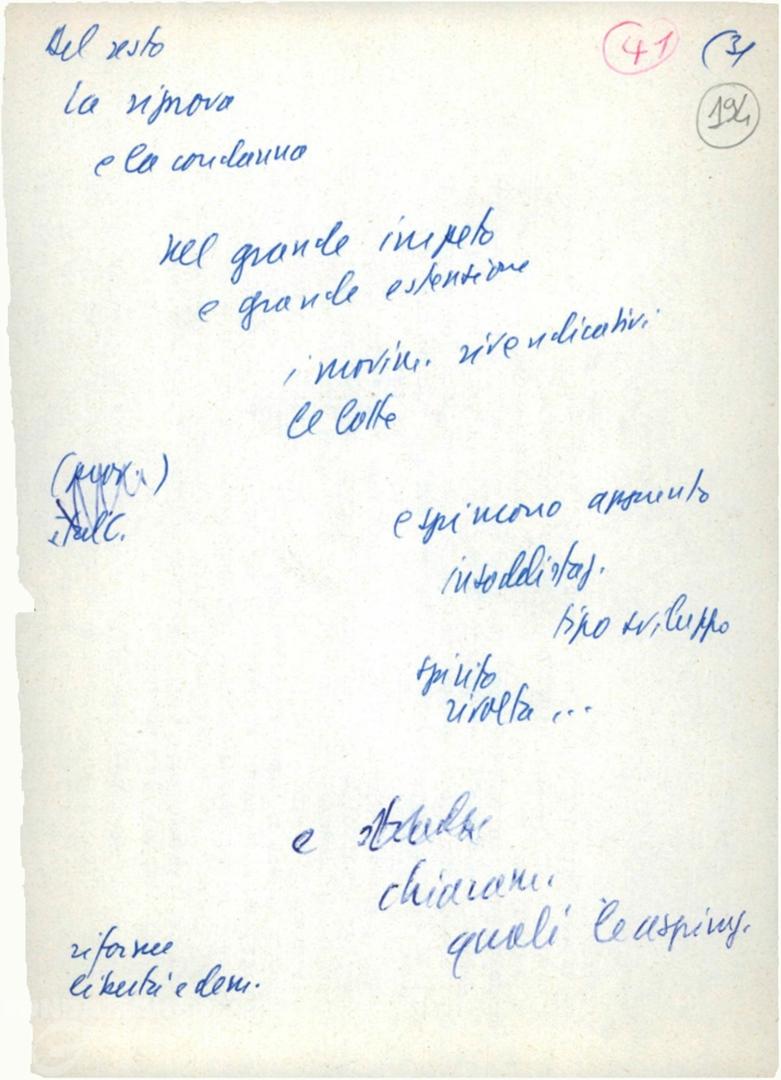 Del resto
41
(3)
194
la riprova
e la condanna
nel grande impeto
e grande estensione
i movim. rivendicativi
le lotte
esprimono appunto
insoddisfaz.
tipo sviluppo
spirito
rivolta ...
e
chiaram.
quali le aspiraz.
riforme
libertà e dem.